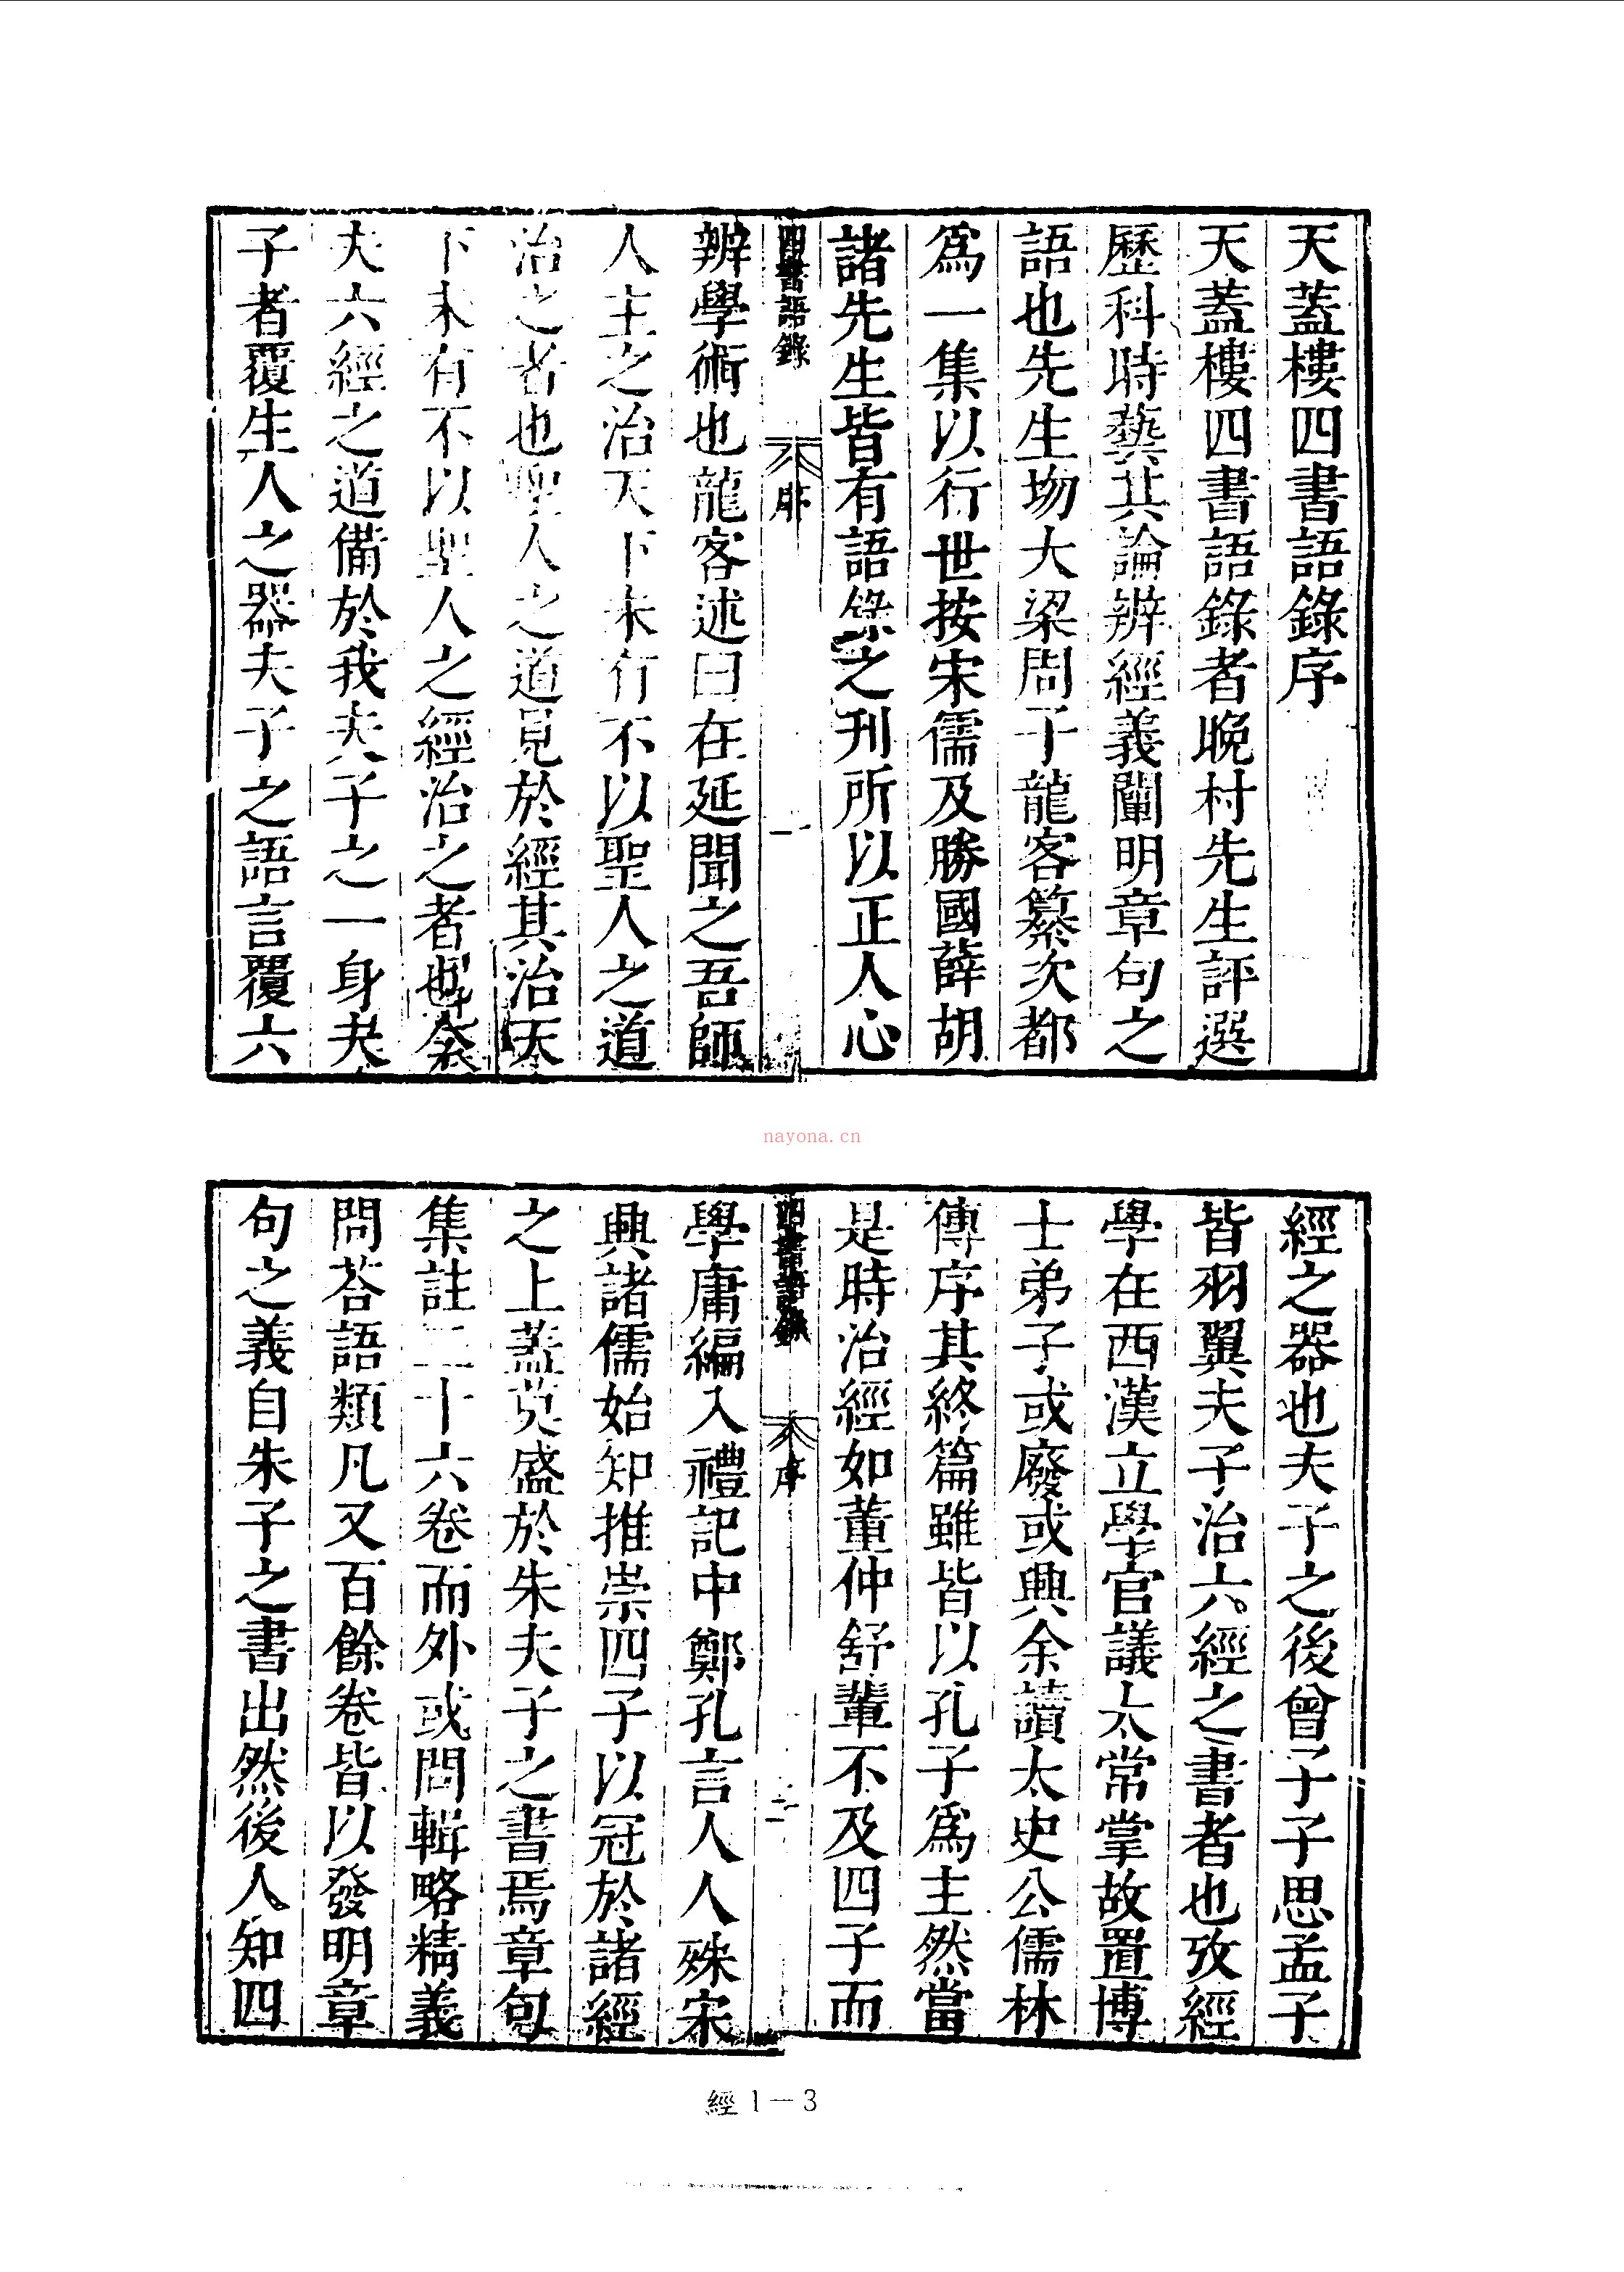 天蓋樓四書語錄序
天蓋樓四書語錄者晚村先生評選
歷科時藝其論辨經義闡明章句之
語也先生歾大梁周子龍客纂次都
爲一集以行世按宋儒及勝國薛胡
諸先生皆有語錄之刊所以正人心
四書語錄 序 一
辨學術也龍客述曰在延聞之吾師
人主之治天下未有不以聖人之道
治之者也聖人之道見於經其治天
下未有不以聖人之經治之者也
夫六經之道備於我夫子之一身夫
子者覆生人之器夫子之語言覆六
nayona.cn
經之器也夫子之後曾子子思孟子
皆羽翼夫子治六經之書者也攷經
學在西漢立學官議太常掌故置博
士弟子或廢或興余讀太史公儒林
傳序其終篇雖皆以孔子爲主然當
是時治經如董仲舒輩不及四子而
四書語錄 序 二
學庸編入禮記中鄭孔言人人殊宋
興諸儒始知推崇四子以冠於諸經
之上蓋莫盛於朱夫子之書焉章句
集註二十六卷而外或問輯略精義
問荅語類凡又百餘卷皆以發明章
句之義自朱子之書出然後人知四
經1－3